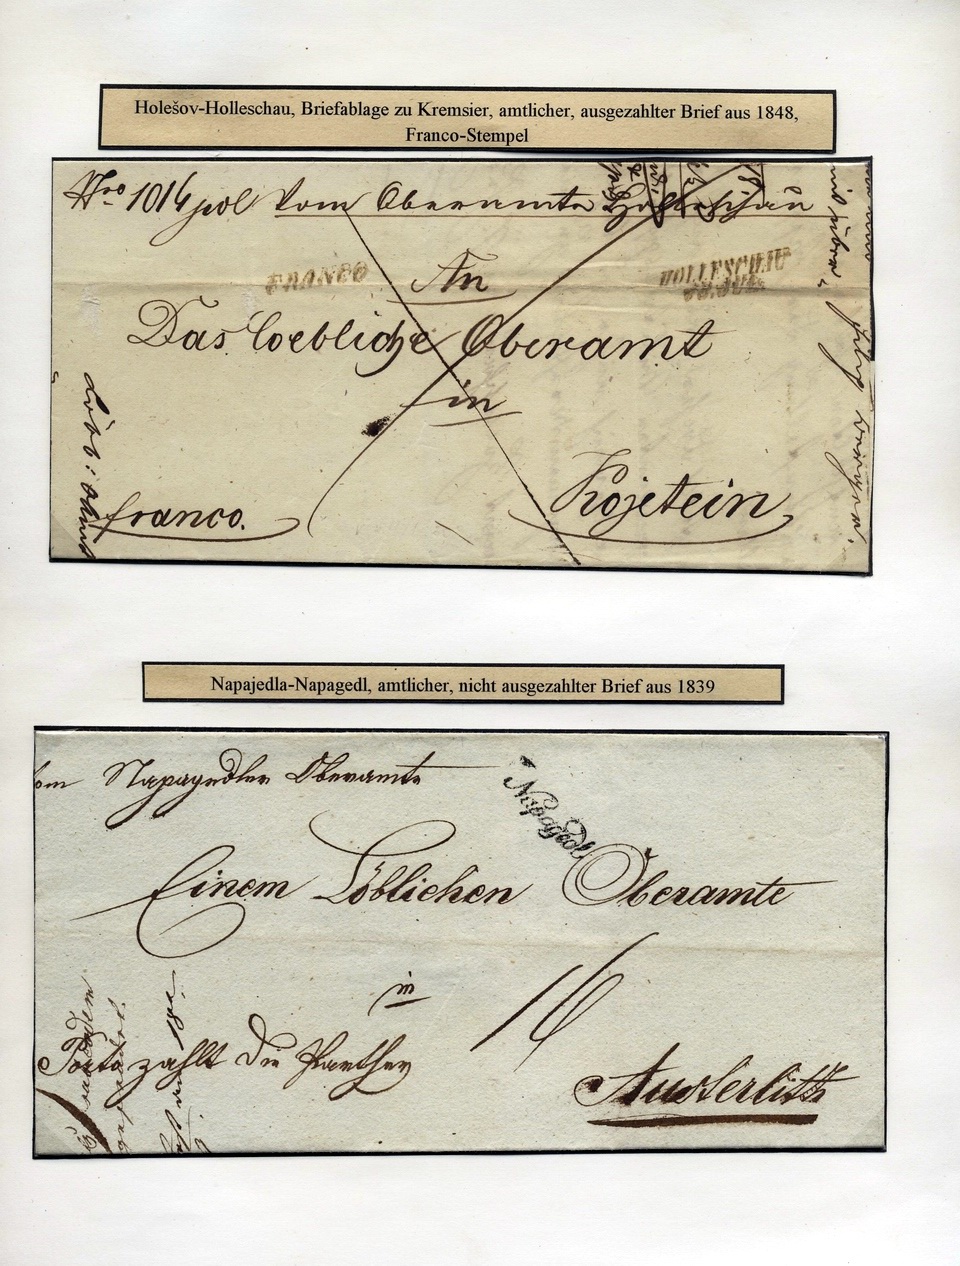 Holešov-Holleschau, Briefablage zu Kremsier, amtlicher, ausgezahlter Brief aus 1848,
Franco-Stempel
Nro 1016 pol Vom Oberamte Holleschau
FRANCO
An
HOLLESCHAU
Das loebliche Oberamt
in
Kojetein
franco.
Napajedla-Napagedl, amtlicher, nicht ausgezahlter Brief aus 1839
Vom Napagedler Oberamte
Napagedl
Einem Löblichen Oberamte
in
16
Porto zahlt die Parthey
Austerlitz